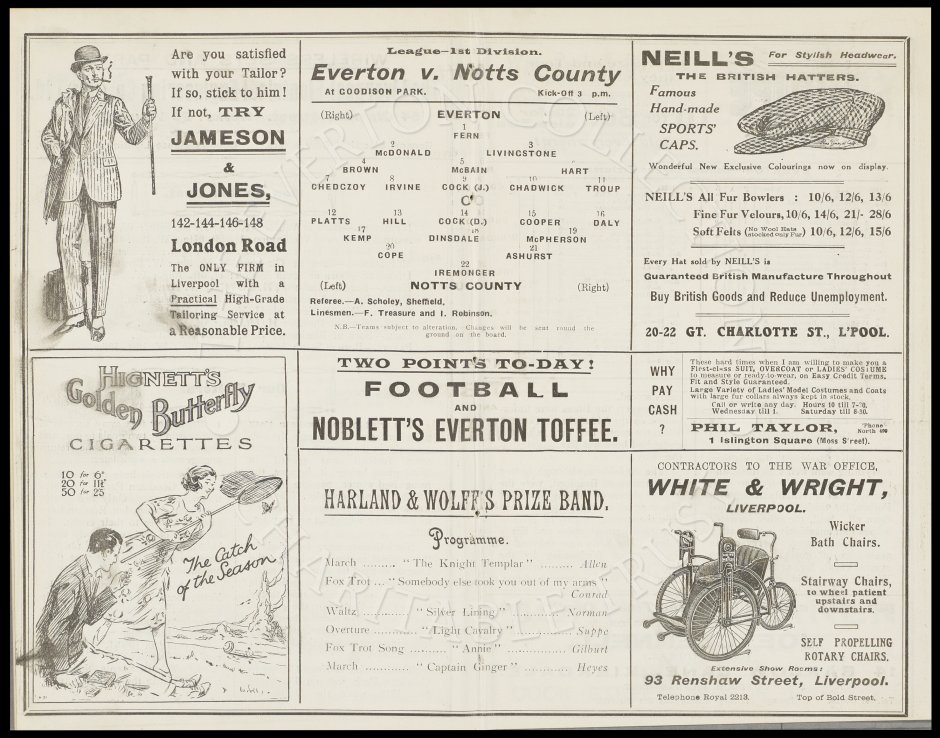 Are you satisfied
with your Tailor?
If so, stick to him!
If not, TRY
JAMESON
&
JONES,
142-144-146-148
London Road
The ONLY FIRM in
Liverpool with a
Practical High-Grade
Tailoring Service at
a Reasonable Price.
HIGNETT'S
Golden Butterfly
CIGARETTES
10 for 6d
20 for 11½d
50 for 2/5
The Catch
of the Season
League—1st Division.
Everton v. Notts County
At GOODISON PARK. Kick-Off 3 p.m.
(Right) EVERTON (Left)
1
FERN
2 3
McDONALD LIVINGSTONE
4 5 6
BROWN McBAIN HART
7 8 9 10 11
CHEDGZOY IRVINE COCK (J.) CHADWICK TROUP
12 13 14 15 16
PLATTS HILL COCK (D.) COOPER DALY
17 18 19
KEMP DINSDALE McPHERSON
20 21
COPE ASHURST
22
IREMONGER
(Left) NOTTS COUNTY (Right)
Referee.—A. Scholey, Sheffield.
Linesmen.—F. Treasure and I. Robinson.
N.B.—Teams subject to alteration. Changes will be sent round the
ground on the board.
TWO POINTS TO-DAY!
FOOTBALL
AND
NOBLETT'S EVERTON TOFFEE.
HARLAND & WOLFF'S PRIZE BAND.
Programme.
March ......... "The Knight Templar" ........ Allen
Fox Trot ... "Somebody else took you out of my arms"
Conrad
Waltz ............ "Silver Lining" ............ Norman
Overture ......... "Light Cavalry" ......... Suppe
Fox Trot Song ......... "Annie" ......... Gilburt
March ......... "Captain Ginger" ......... Heyes
NEILL'S For Stylish Headwear.
THE BRITISH HATTERS.
Famous
Hand-made
SPORTS'
CAPS.
Wonderful New Exclusive Colourings now on display.
NEILL'S All Fur Bowlers : 10/6, 12/6, 13/6
Fine Fur Velours, 10/6, 14/6, 21/- 28/6
Soft Felts (No Wool Hats stocked only Fur) 10/6, 12/6, 15/6
Every Hat sold by NEILL'S is
Guaranteed British Manufacture Throughout
Buy British Goods and Reduce Unemployment.
20-22 GT. CHARLOTTE ST., L'POOL.
WHY
PAY
CASH
?
These hard times when I am willing to make you a
First-class SUIT, OVERCOAT or LADIES' COSTUME
to measure or ready-to-wear, on Easy Credit Terms.
Fit and Style Guaranteed.
Large Variety of Ladies' Model Costumes and Coats
with large fur collars always kept in stock.
Call or write any day. Hours 10 till 7-30.
Wednesday till 1. Saturday till 8-30.
PHIL TAYLOR, 'Phone North
1 Islington Square (Moss Street).
CONTRACTORS TO THE WAR OFFICE,
WHITE & WRIGHT,
LIVERPOOL.
Wicker
Bath Chairs.
Stairway Chairs,
to wheel patient
upstairs and
downstairs.
SELF PROPELLING
ROTARY CHAIRS.
Extensive Show Rooms:
93 Renshaw Street, Liverpool.
Telephone Royal 2213. Top of Bold Street.
EVERTON COLLECTION
CHARITABLE TRUST